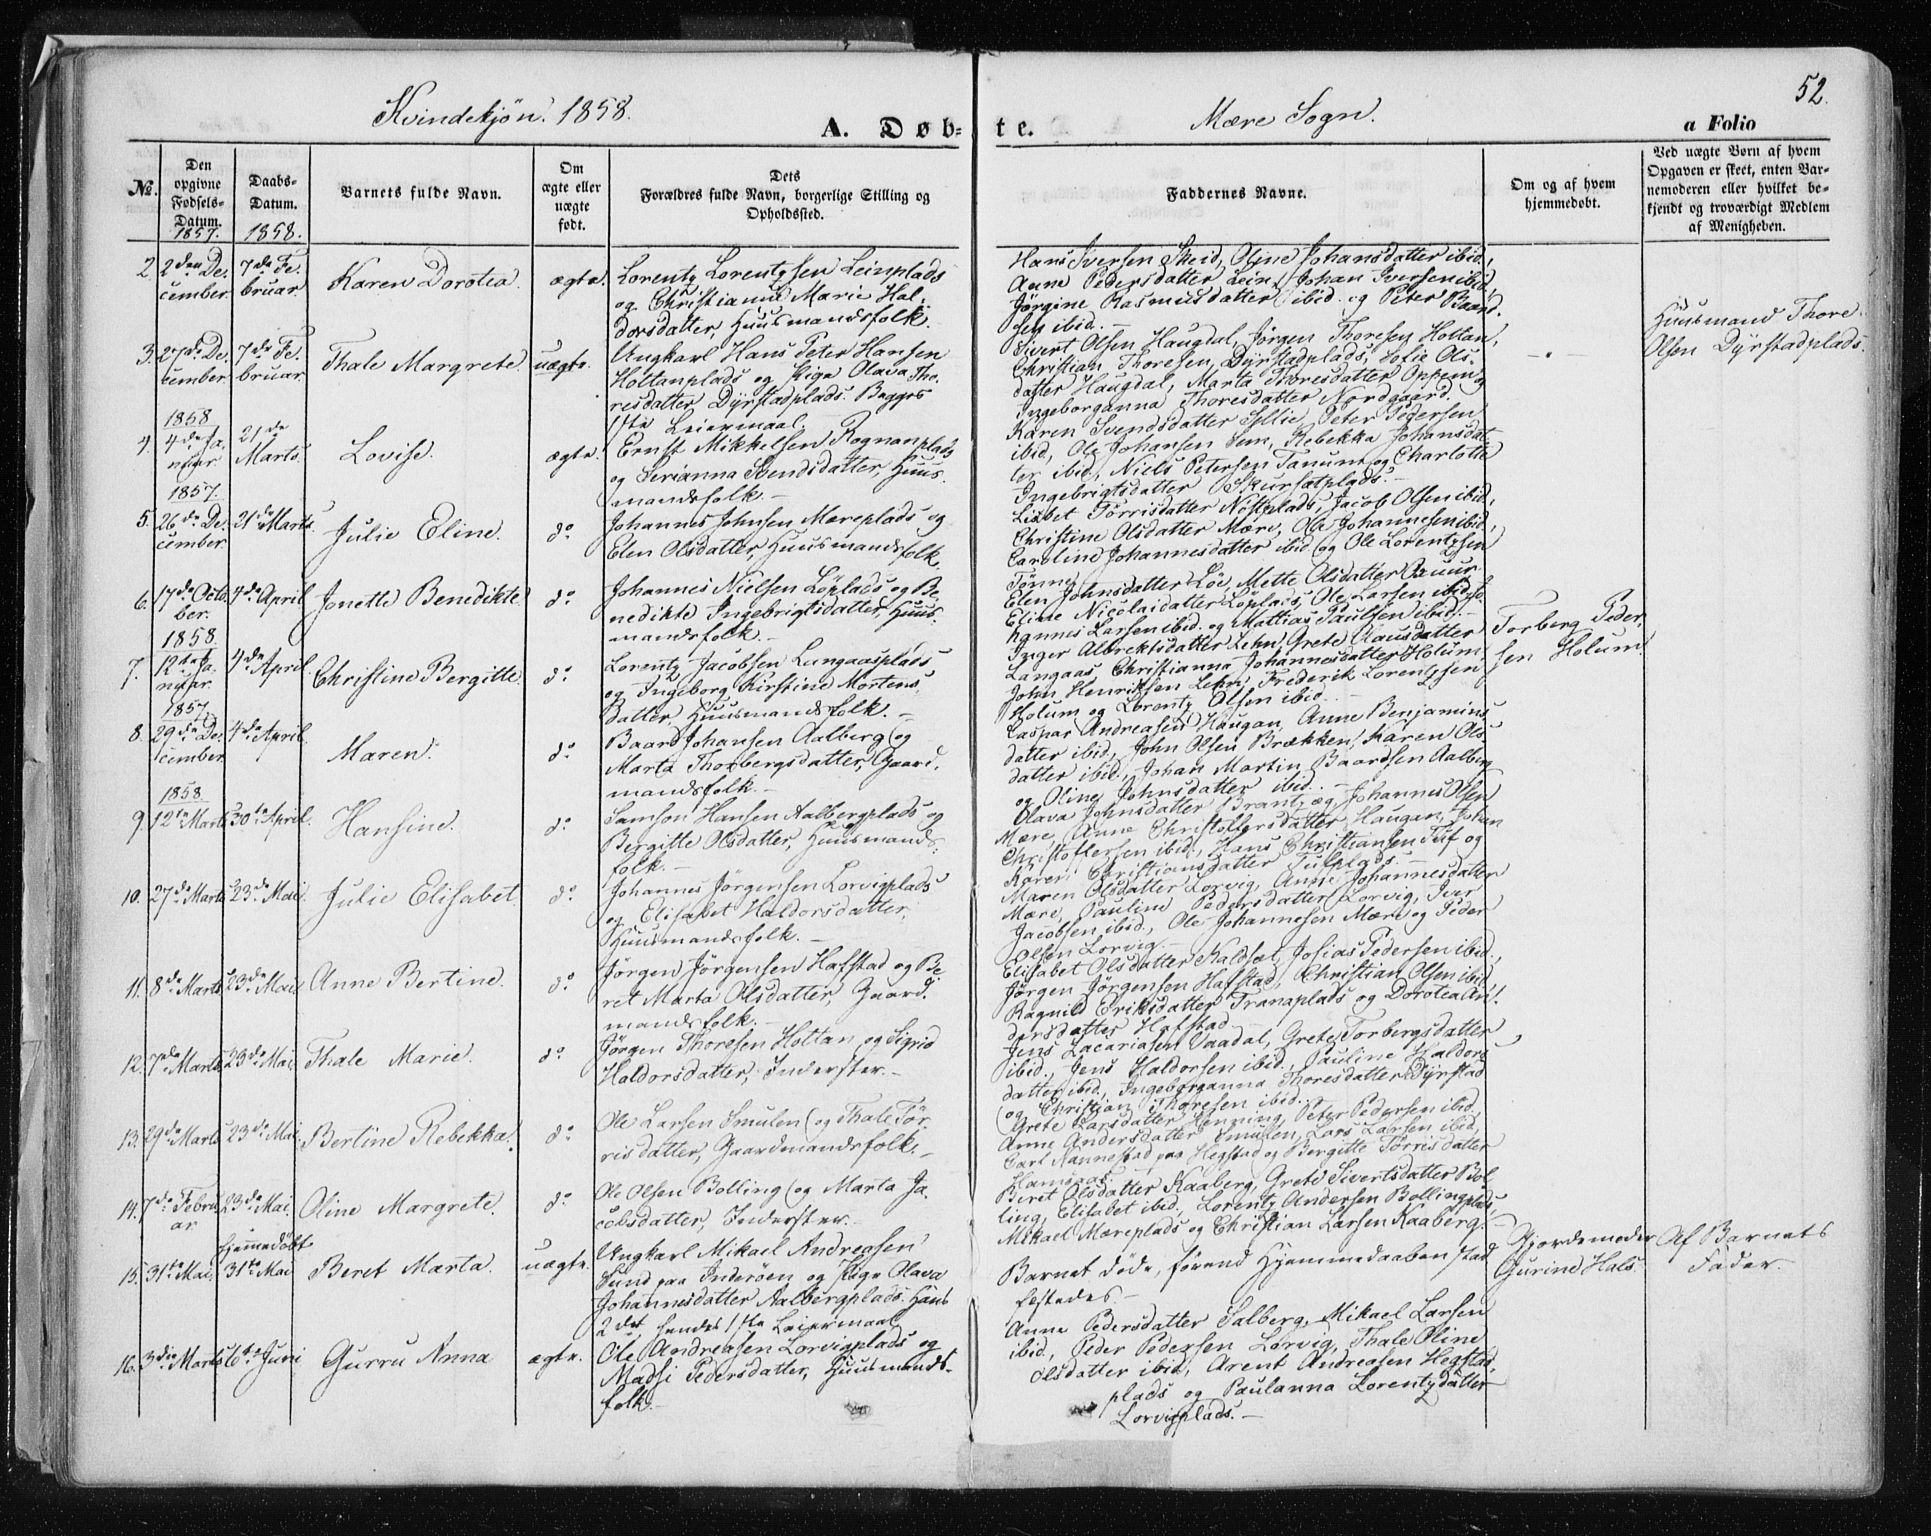 52.
Kvindekjøn. 1858.
Mære Sogn.
A. Døb-
te.
a Folio
№.
Den opgivne Fødsels-Datum.
Daabs-Datum.
Barnets fulde Navn.
Om ægte eller uægte født.
Dets Forældres fulde Navn, borgerlige Stilling og Opholdssted.
Faddernes Navne.
Om og af hvem hjemmedøbt.
Ved uægte Børn af hvem Opgaven er skeet, enten Barnemoderen eller hvilket bekjendt og troværdigt Medlem af Menigheden.
1857.
1858.
2. 2den December. 7de Februar. Karen Dorotea. ægte.
Lorentz Lorentzsen Leinplads
og Christianne Marie Hal-
dorsdatter, Huusmandsfolk.
Hans Iversen Skeid, Oline Johansdatter ibid.,
Anne Pedersdatter Lein, Johan Iversen ibid.,
Jørgine Rasmusdatter ibid. og Peter Baard-
sen ibid.
3. 27de December. 7de Februar. Thale Margrete. uægte.
Ungkarl Hans Peter Hansen
Hottanplads og Pige Olava Tho-
resdatter Dyrstadplads. Begges
1ste Leiermaal.
Sivert Olsen Haugdal, Jørgen Thoresen Hottan,
Christian Thoresen, Dyrstadplads, Sofie Ols-
datter Haugdal, Marta Thoresdatter Oppem og
Ingeborganna Thoresdatter Nordgaard.
Huusmand Thore
Olsen Dyrstadplads.
1858
4. 4de Januar. 21de Marts. Lovise. ægte.
Ernst Mikkelsen Rognanplads
og Serianna Svendsdatter, Huus-
mandsfolk.
Karen Svendsdatter Sellie, Peter Pedersen
ibid, Ole Johansen Sem, Rebekka Johansdat-
ter ibid, Niels Petersen Tanum og Charlotte
Ingebrigtsdatter Skursætplads.
1857.
5. 26de December. 21de Marts. Julie Eline. do
Johannes Johnsen Mæreplads og
Elen Olsdatter Huusmandsfolk.
Lisbet Tørrisdatter Nøstplads, Jacob Olsen ibid,
Christine Olsdatter Mære, Ole Johannesen ibid,
Caroline Johannesdatter ibid og Ole Lorentzsen
Tønne.
6. 17de October. 4de April. Jonette Benedikte. do
Johannes Nielsen Løplads og Be-
nedikte Ingebrigtsdatter, Huus-
mandsfolk.
Elen Johnsdatter Løe, Mette Olsdatter Buur
Eline Nicolaidatter Løplads, Ole Larsen ibid, Jo-
hannes Larsen ibid. og Mattias Paulsen ibid.
1858.
7. 12te Januar. 4de April. Christine Bergitte. do
Lorentz Jacobsen Langaasplads
og Ingeborg Kirstine Mortens-
datter Huusmandsfolk.
Inger Albrektsdatter Lehn, Grete Clausdatter
Langaas Christianna Johannesdatter Holum
John Henriksen Lehn, Frederik Lorentzsen
Holum og Lorentz Olsen ibid.
Torberg Peder-
sen Holum.
1857
8. 29de December. 4de April. Maren. do
Baard Johansen Aalberg og
Marta Thorbergsdatter, Gaard-
mandsfolk.
Caspar Andreasen Haugan, Anne Benjamins-
datter ibid., John Olsen Brækken, Karen Ols-
datter ibid., Johan Martin Baardsen Aalberg
og Oline Johnsdatter ibid.
1858.
9. 12te Marts 30te April. Hansine. do
Samson Hansen Aalbergplads og
Bergitte Olsdatter, Huusmands-
folk.
Olava Johnsdatter Brantz og Johannes Olsen
Mære, Anne Christoffersdatter Haugan, Johan
Christoffersen ibid., Hans Christiansen Tuf og
Karen Christiansdatter Tufplads.
10. 27de Marts 23de Mai. Julie Elisabet do
Johannes Jørgensen Lorvigplads
og Elisabet Haldorsdatter,
Huusmandsfolk.
Maren Olsdatter Lorvig, Anne Johannesdatter
Mære, Pauline Pedersdatter Lorvig, Iver
Jacobsen ibid., Ole Johannesen Mære og Peder
Olsen Lorvig.
11. 8de Marts 23de Mai. Anne Bertine. do
Jørgen Jørgensen Hafstad og Be-
ret Marta Olsdatter, Gaard-
mandsfolk.
Elisabet Olsdatter Kaldsæt, Josias Pedersen ibid.,
Jørgen Jørgensen Hafstad, Christian Olsen ibid
Ragnild Eriksdatter Tranaplads og Dorotea An-
dersdatter Hafstad
12. 7de Marts. 23de Mai. Thale Marie. do
Jørgen Thoresen Hottan og Sigrid
Haldorsdatter, Inderster.
Jens Zacariasen Vaadal, Grete Torbergsdatter
ibid., Jens Haldorsen ibid., Pauline Haldors-
datter ibid., Ingeborganna Thoresdatter Dyrstad
og Christian Thoresen ibid.
13. 29de Marts 23de Mai. Bertine Rebekka. do
Ole Larsen Smulen og Thale Tør-
risdatter, Gaardmandsfolk.
Grete Larsdatter Benning, Peter Pedersen ibid,
Anne Andersdatter Smulen, Lars Larsen ibid,
Carl Nannestad paa Hegstad og Bergitte Tørrisdatter
14. 7de Februar. 23de Mai. Oline Margrete. do
Ole Olsen Bolling og Marta Ja-
cobsdatter, Inderster.
Beret Olsdatter Kaaberg, Grete Sivertsdatter Bol-
ling, Elisabet ibid, Lorentz Andersen Bollingplads
Mikael Mæreplads og Christian Larsen Kaaberg.
Hjemmedøbt
15. 31te Mai. 31te Mai Beret Marta. uægte.
Ungkarl Mikael Andreasen
Sund paa Inderøen og Pige Olava
Johannesdatter Aalbergplads. Hans
2det hendes 1ste Leiermaal.
Barnet døde, førend Hjemmedaaben stad-
fæstedes.
Gjordemoder
Gurine Hals.
Af Barnets
Fader.
16. 3die Marts 6te Juni Gurru Anna ægte.
Ole Andreasen Lorvigplads og
Madsi Pedersdatter, Huusmands-
folk.
Anne Pedersdatter Salberg, Mikael Larsen
ibid., Peder Pedersen Lorvig, Thale Oline
Olsdatter ibid, Arent Andreasen Hegstad-
plads og Paulanna Lorentzdatter
Lorvigplads.